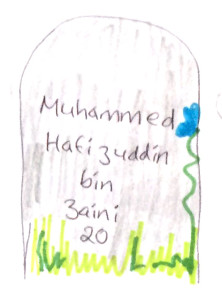 Muhammed
Hafizuddin
bin
Zaini
20